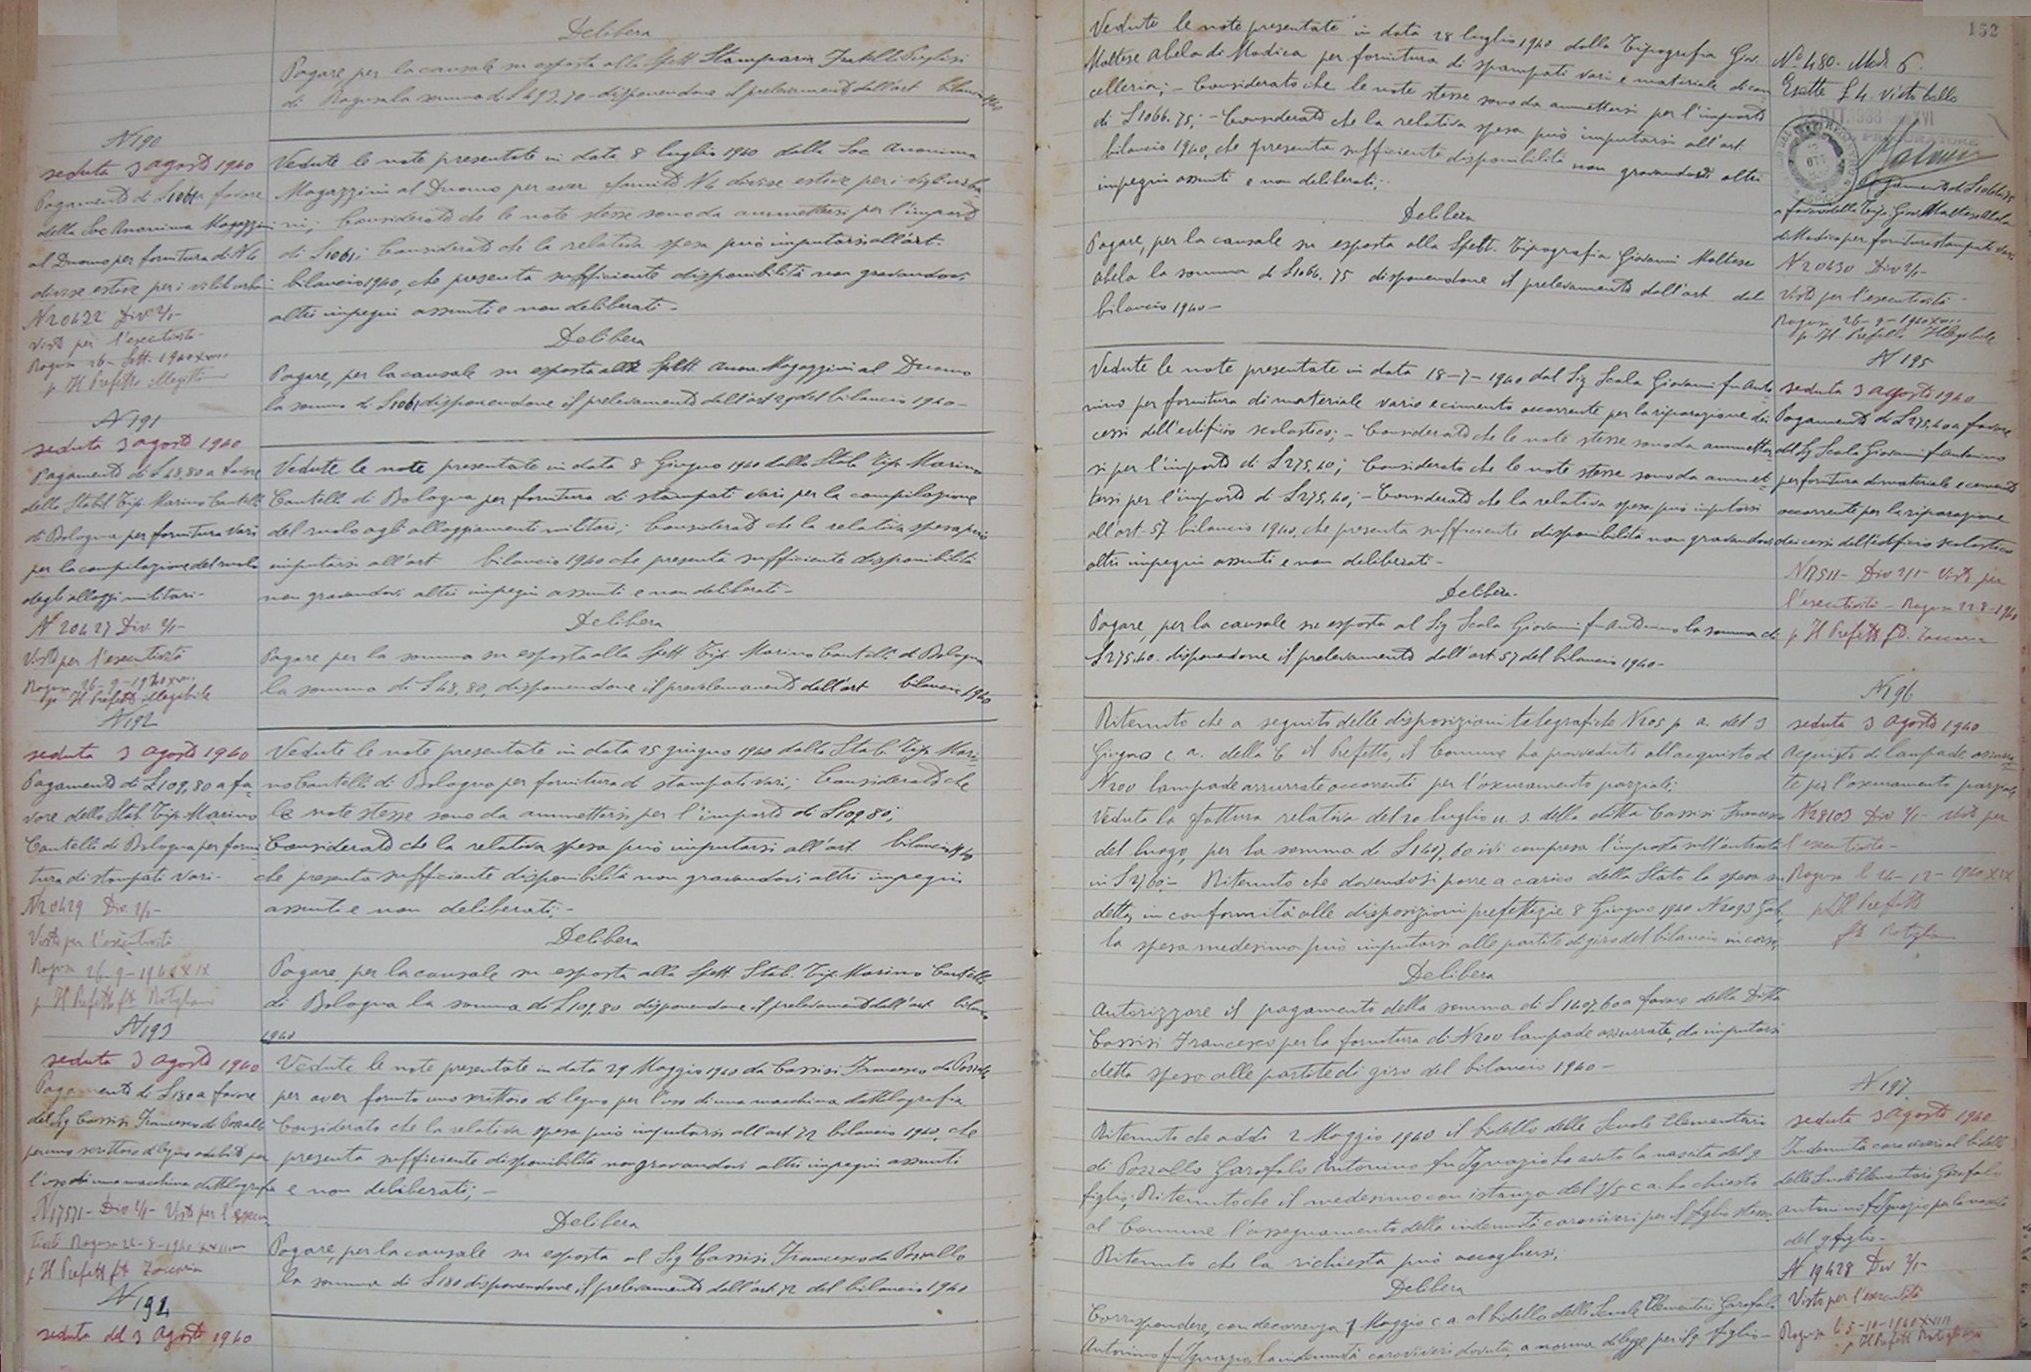 Delibera
Pagare, per la causale su esposta alla Spett. Stamperia Fratelli Puglisi
di Ragusa la somma di £ 493,70 disponendone il prelevamento dall'art bilancio 1940
N 190
seduta 3 agosto 1940
Pagamento di £ 1061 a favore
della Soc Anonima Magazzini
al Duomo per fornitura di N 6
divise estive per i vigili urbani
N 20422 Div 2/1-
Visto per l'esecutività
Ragusa 26 - Sett. 1940 XVIII
p Il Prefetto Illegibile
Vedute le note presentate in data 8 luglio 1940 dalla Soc Anonima
Magazzini al Duomo per aver fornito N 6 divise estive per i vigili urba
ni; Considerato che le note stesse sono da ammettersi per l'importo
di £ 1061; Considerato che la relativa spesa può imputarsi all'art.
bilancio 1940, che presenta sufficiente disponibilità non gravandovi
altri impegni assunti e non deliberati -
Delibera
Pagare, per la causale su esposta alla Spett. Anon. Magazzini al Duomo
la somma di £ 1061 disponendone il prelevamento dall'art 29 del bilancio 1940 -
N 191
seduta 3 agosto 1940
Pagamento di £ 48,80 a favore
dello Stabil Tip. Marino Cantelli
di Bologna per fornitura vari
per la compilazione del ruolo
degli alloggi militari -
N 20427 Div 2/1-
Visto per l'esecutività
Ragusa 26 - 9 - 1940 XVIII
p Il Prefetto illegibile
Vedute le note presentate in data 8 Giugno 1940 dallo Stab. Tip. Marino
Cantelli di Bologna per fornitura di stampati vari per la compilazione
del ruolo agli alloggiamenti militari; Considerato che la relativa spesa può
imputarsi all'art bilancio 1940 che presenta sufficiente disponibilità
non gravandovi altri impegni assunti e non deliberati -
Delibera
Pagare per la somma su esposta alla Spett Tip. Marino Cantelli di Bologna
la somma di £ 48,80, disponendone il prevelamento dall'art bilancio 1940
N 192
seduta 3 agosto 1940
Pagamento di £ 109,80 a fa-
vore dello Stab. Tip. Marino
Cantelli di Bologna per forni
tura di stampati vari -
N 20429 Div 2/1-
Visto per l'esecutività
Ragusa 26-9-1940 XIX
p Il Prefetto fto
Vedute le note presentate in data 25 giugno 1940 dallo Stab. Tip. Mari
no Cantelli di Bologna per fornitura di stampati vari; Considerato che
le note stesse sono da ammettersi per l'importo di £ 109,80;
Considerato che la relativa spesa può imputarsi all'art bilancio 1940
che presenta sufficiente disponibilità non gravandovi altri impegni
assunti e non deliberati; -
Delibera
Pagare, per la causale su esposta alla Spett Stab. Tip. Marino Cantelli
di Bologna la somma di £ 109,80 disponendone il prelevamento dall'art bilancio
1940
N 193
seduta 3 agosto 1940
Pagamento di £ 180 a favore
del Sig Cassisi Francesco di Pozzallo
per uno scrittoio di legno adibito per
l'uso di una macchina dattilografia
N 17571 - Div 2/1 - Visto per l'esecu
tività Ragusa 22-8-1940 XVIII
p Il Prefetto fto Zaccaria
Vedute le note presentate in data 29 Maggio 1940 da Cassisi Francesco da Pozzallo
per aver fornito uno scrittoio di legno per l'uso di una macchina dattilografia -
Considerato che la relativa spesa può imputarsi all'art 72 bilancio 1940, che
presenta sufficiente disponibilità non gravandovi altri impegni assunti
e non deliberati; -
Delibera
Pagare, per la causale su esposta al Sig Cassisi Francesco da Pozzallo
la somma di £ 180 disponendone il prelevamento dall'art 72 del bilancio 1940
N 194
seduta del 3 agosto 1940
152
Vedute le note presentate in data 28 luglio 1940 dalla Tipografia Giov.
Maltese Abela di Modica per fornitura di stampati vari e materiale di can
celleria; - Considerato che le note stesse sono da ammettersi per l'importo
di £ 1066.75; - Considerato che la relativa spesa può imputarsi all'art
bilancio 1940, che presenta sufficiente disponibilità non gravandovi altri
impegni assunti e non deliberati;
Delibera
Pagare, per la causale su esposta alla Spett. Tipografia Giovanni Maltese
Abela la somma di £ 1066.75 disponendone il prelevamento dall'art del
bilancio 1940 -
N° 480 - Mod. 6
Esatte £ 4. visto bollo
Pagamento di £ 1066.75
a favore della Tip. Giov. Maltese Abela
di Modica per fornitura stampati vari
N 20430 Div 2/1-
Visto per l'esecutività -
Ragusa 26 - 9 - 1940 XVIII
p Il Prefetto Illegibile
N 195
seduta 3 agosto 1940
Pagamento di £ 275,40 a favore
del Sig Scala Giovanni fu Antonino
per fornitura di materiale e cemento
occorrente per la riparazione
dei cessi dell'edificio scolastico
N 17511 - Div 2/1 - Visto per
l'esecutività - Ragusa 22-8-1940
p Il Prefetto fto. Zaccaria
Vedute le note presentate in data 18-7-1940 dal Sig Scala Giovanni fu Anto
nino per fornitura di materiale vario e cemento occorrente per la riparazione dei
cessi dell'edificio scolastico; - Considerato che le note stesse sono da ammetter
si per l'importo di £ 275,40; Considerato che le note stesse sono da ammet-
tersi per l'importo di £ 275,40; - Considerato che la relativa spesa può imputarsi
all'art. 57 bilancio 1940, che presenta sufficiente disponibilità non gravandovi
altri impegni assunti e non deliberati -
Delibera
Pagare, per la causale su esposta al Sig Scala Giovanni fu Antonino la somma di
£ 275.40. disponendone il prelevamento dall'art. 57 del bilancio 1940 -
N 196
seduta 3 agosto 1940
Acquisto di lampade azzurra
te per l'oscuramento parziale
N 28103 Div 2/1 - Visto per
l'esecutività -
Ragusa lì 24-12-1940 XIX
p Il Prefetto
Ritenuto che a seguito delle disposizioni telegrafiche N 205 p. a. del 3
Giugno c. a. della E il Prefetto, il Comune ha provveduto all'acquisto di
N 200 lampade azzurrate occorrenti per l'oscuramento parziale;
Veduta la fattura relativa del 20 luglio u. s. della ditta Cassisi Francesco
del luogo, per la somma di £ 1407,60 ivi compresa l'imposta sull'entrata
in £ 27,60 - Ritenuto che dovendosi porre a carico dello Stato la spesa su
detta, in conformità alle disposizioni prefettizie 8 Giugno 1940 N 2093 Gab,
la spesa medesima può imputarsi alle partite di giro del bilancio in corso;
Delibera
Autorizzare il pagamento della somma di £ 1407,60 a favore della Ditta
Cassisi Francesco per la fornitura di N 200 lampade azzurrate, da imputarsi
detta spesa alle partite di giro del bilancio 1940 -
N 197
seduta 3 agosto 1940
Indennità caro viveri al bidello
delle Scuole Elementari Garofalo
Antonino fu Ignazio per la nascita
del 9 figlio -
N 19428 Div 2/1-
Visto per l'esecutività
Ragusa lì 5-10-1940 XVIII
p Il Prefetto
Ritenuto che addì 2 Maggio 1940 il bidello delle Scuole Elementari
di Pozzallo Garofalo Antonino fu Ignazio ha avuto la nascita del 9
figlio; Ritenuto che il medesimo con istanza del 3/5 c a. ha chiesto
al Comune l'assegnamento della indennità caroviveri per il figlio stesso
Ritenuto che la richiesta può accogliersi;
Delibera
Corrispondere, con decorrenza 1 Maggio c a al bidello delle Scuole Elementari Garofalo
Antonino fu Ignazio, l'indennità caroviveri dovuta, a norma di legge per il 9 figlio -